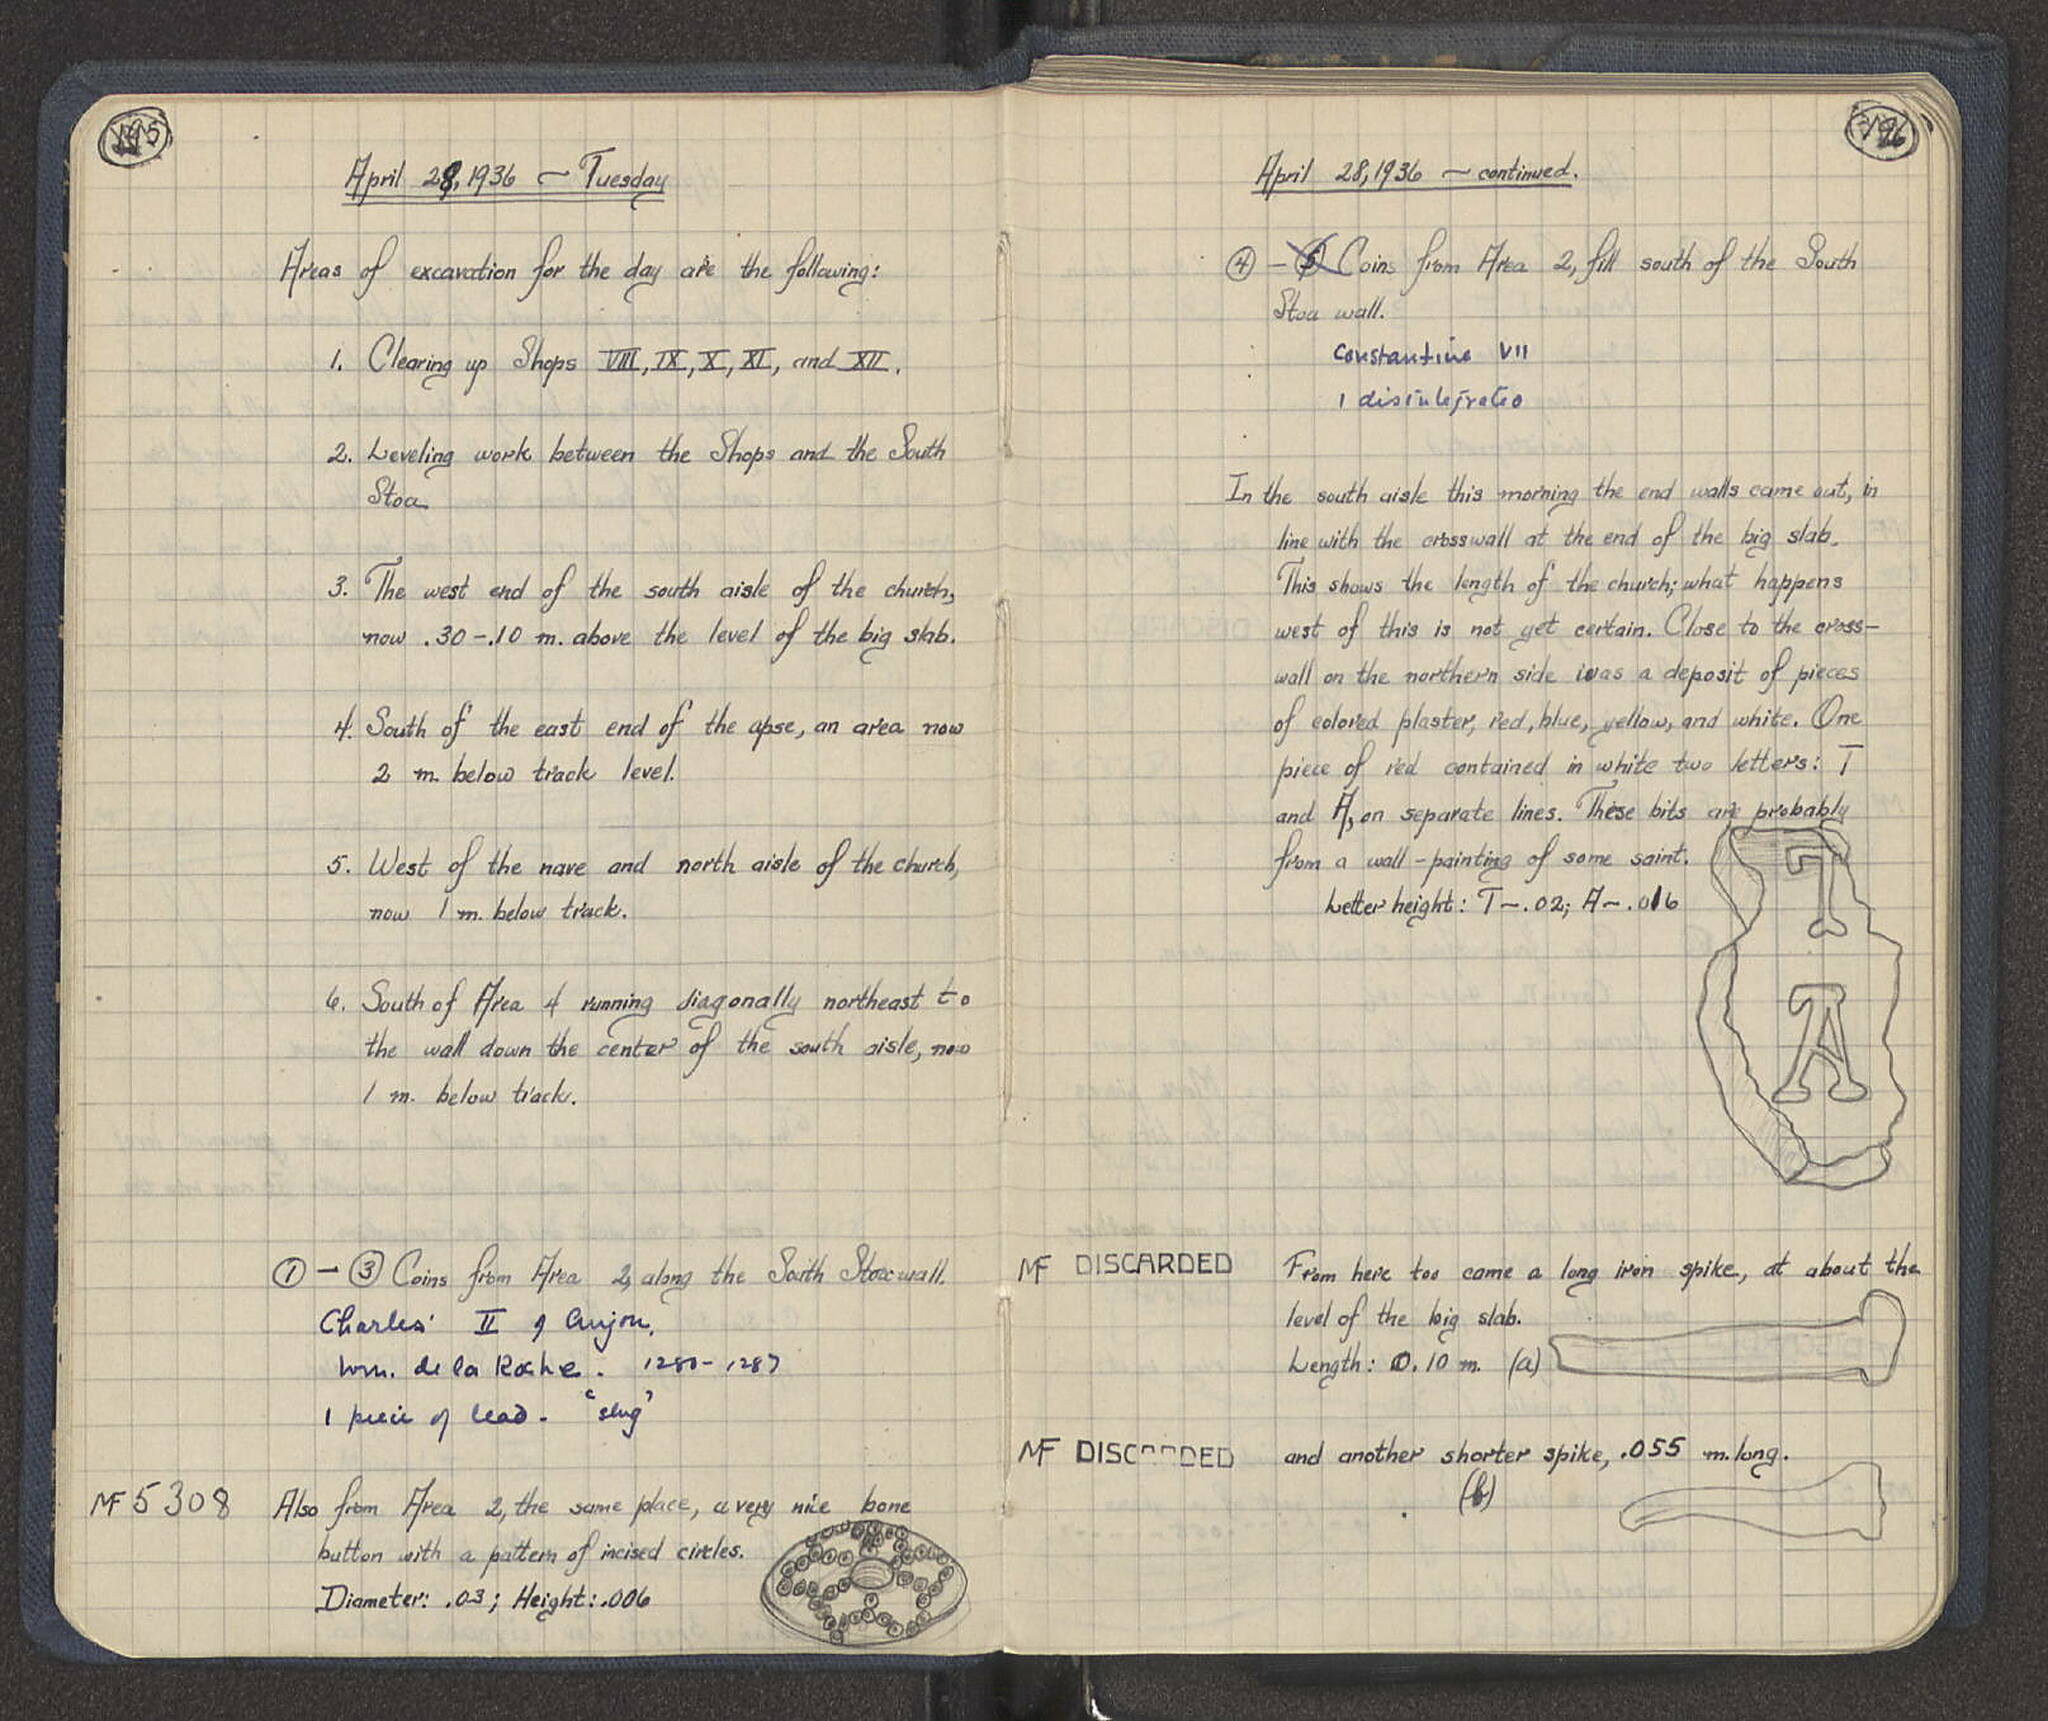 April 28, 1936 — Tuesday
Areas of excavation for the day are the following:
1. Clearing up Shops VIII, IX, X, XI, and XII.
2. Leveling work between the Shops and the South
Stoa
3. The west end of the south aisle of the church,
now .30-.10 m. above the level of the big slab.
4. South of the east end of the apse, an area now
2 m. below track level.
5. West of the nave and north aisle of the church,
now 1 m. below track.
6. South of Area 4 running diagonally northeast to
the wall down the center of the south aisle, now
1 m. below track.
① — ③ Coins from Area 2, along the South Stoa wall.
Charles II of Anjou.
Wm. de la Roche. 1280-1287
1 piece of lead. "slug"
MF 5308 Also from Area 2, the same place, a very nice bone
button with a pattern of incised circles.
Diameter: .03; Height: .006
April 28, 1936 — continued.
④ — Coins from Area 2, fill south of the South
Stoa wall.
Constantine VII
1 disintegrated
In the south aisle this morning the end walls came out, in
line with the crosswall at the end of the big slab.
This shows the length of the church; what happens
west of this is not yet certain. Close to the cross-
wall on the northern side was a deposit of pieces
of colored plaster, red, blue, yellow, and white. One
piece of red contained in white two letters: T
and A, on separate lines. These bits are probably
from a wall-painting of some saint.
Letter height: T — .02; A — .016
T
A
MF DISCARDED From here too came a long iron spike, at about the
level of the big slab.
Length: 0.10 m. (a)
MF DISCARDED and another shorter spike, .055 m. long.
(b)